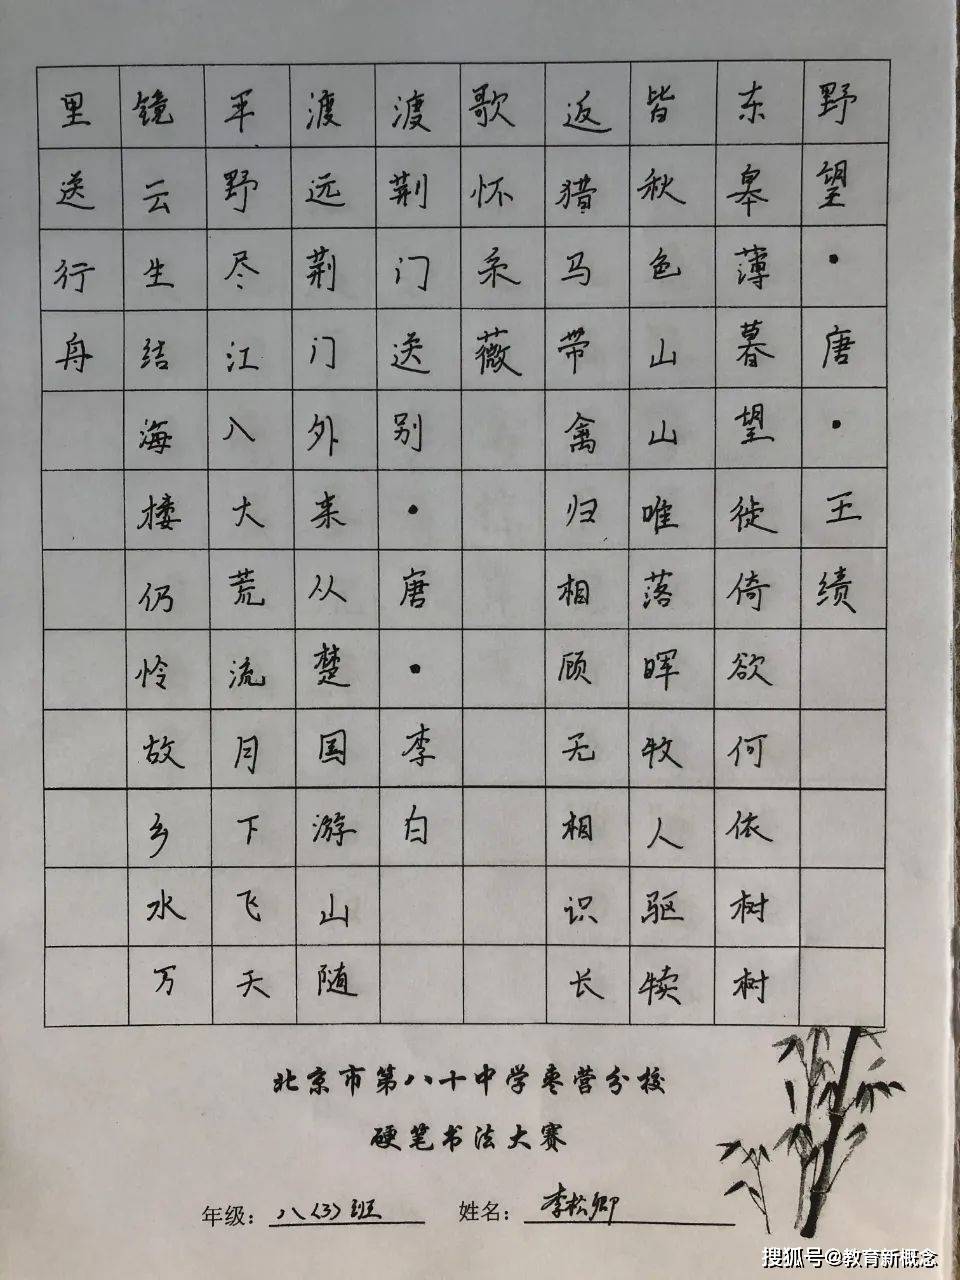 野望·唐·王绩
东皋薄暮望徙倚欲何依树树
皆秋色山山唯落晖牧人驱犊
返猎马带禽归相顾无相识长
歌怀采薇
渡荆门送别·唐·李白
渡远荆门外来从楚国游山随
平野尽江入大荒流月下飞天
镜云生结海楼仍怜故乡水万
里送行舟
北京市第八十中学枣营分校
硬笔书法大赛
年级：八(3)班 姓名：李松卿
搜狐号@教育新概念